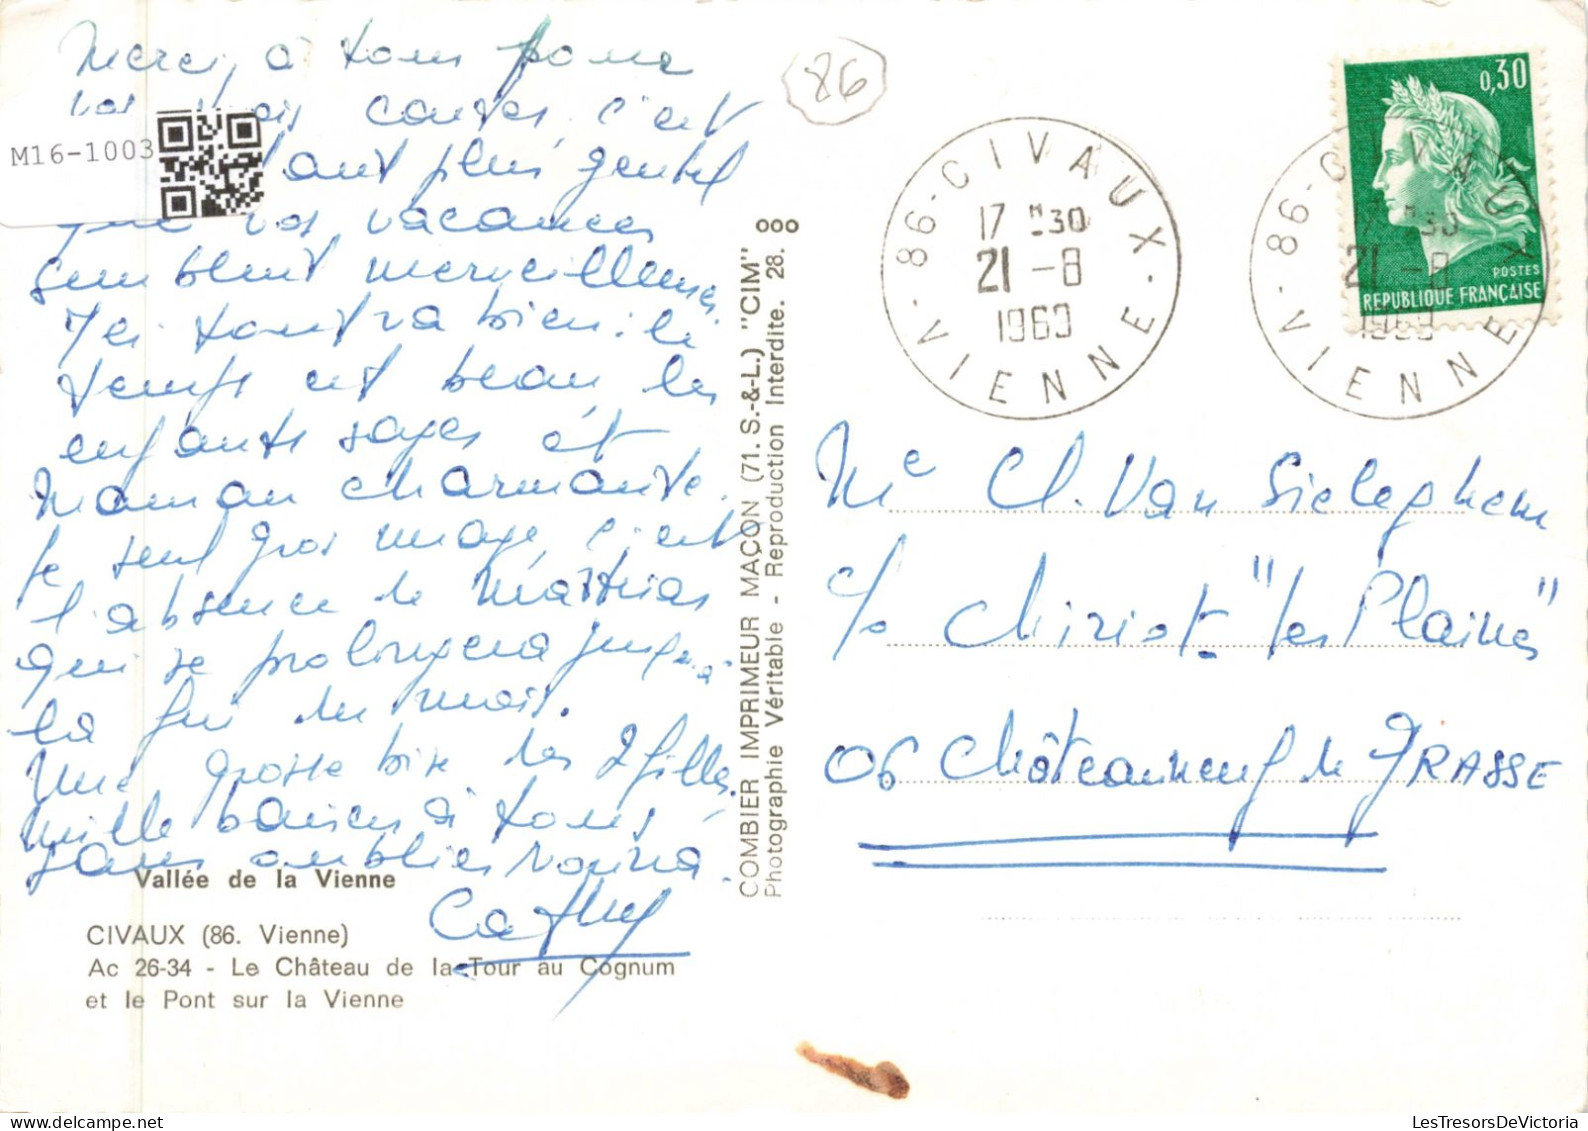 Merci, à tous pour
vos trois cartes, c'est
d'autant plus gentil
que vos vacances
semblent merveilleuses
Ici tout va bien : le
temps est beau, les
enfants sages et
Maman charmante.
le seul gros nuage, c'est
l'absence de Mathias
qui se prolongera jusqu'à
la fin du mois.
Une grosse bise des 2 filles
mille baisers à tous
sans oublier Nouna.
Cathy
Vallée de la Vienne
CIVAUX (86. Vienne)
Ac 26-34 - Le Château de la Tour au Cognum
et le Pont sur la Vienne
M16-1003
COMBIER IMPRIMEUR MAÇON (71. S.-&-L.) "CIM"
Photographie Véritable - Reproduction Interdite. 28.
86
86 - CIVAUX - VIENNE
17 H 30
21 - 8
1969
86 - CIVAUX - VIENNE
H 30
21 - 8
1969
0,30
POSTES
REPUBLIQUE FRANÇAISE
Me Cl. Van Sieleghem
c/o Chiriot - "les Plaines"
06 Châteauneuf de GRASSE
LesTresorsDeVictoria